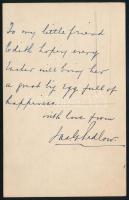 To my little friend
Edith hoping every
Easter will bring her
a great big egg full of
happiness.
with love from